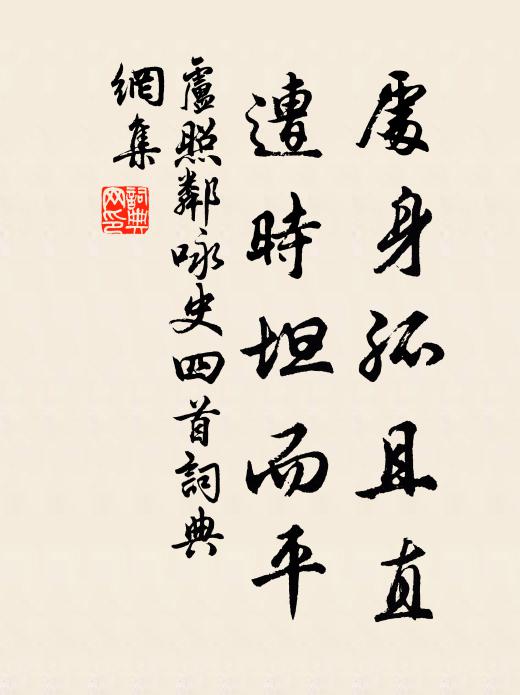 處身孤且直
遭時坦而平
盧照鄰咏史四首詞典
網集
詞典
网印